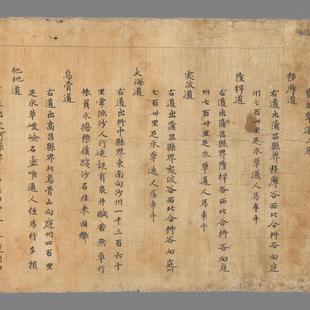 移摩道
右道出蒲昌縣界移摩谷西北合柳谷向庭
州七百卌里足水草通人馬車牛
薩捍道
右道出蒲昌縣界薩捍谷西北合柳谷向庭
州七百卅里足水草通人馬車牛
突波道
右道出蒲昌縣界突波谷西北合柳谷向庭州
七百卅里足水草通人馬車牛
大海道
右道出柳中縣界東南向沙州一千三百六十
里常流沙人行迷誤有泉井醎苦無草行
旅負水擔糧履踐沙石往來困弊
烏骨道
右道出高昌縣界北烏骨山向庭州四百里
足水草峻嶮石麁唯通人徑馬行多損
他地道
右道出交河縣界